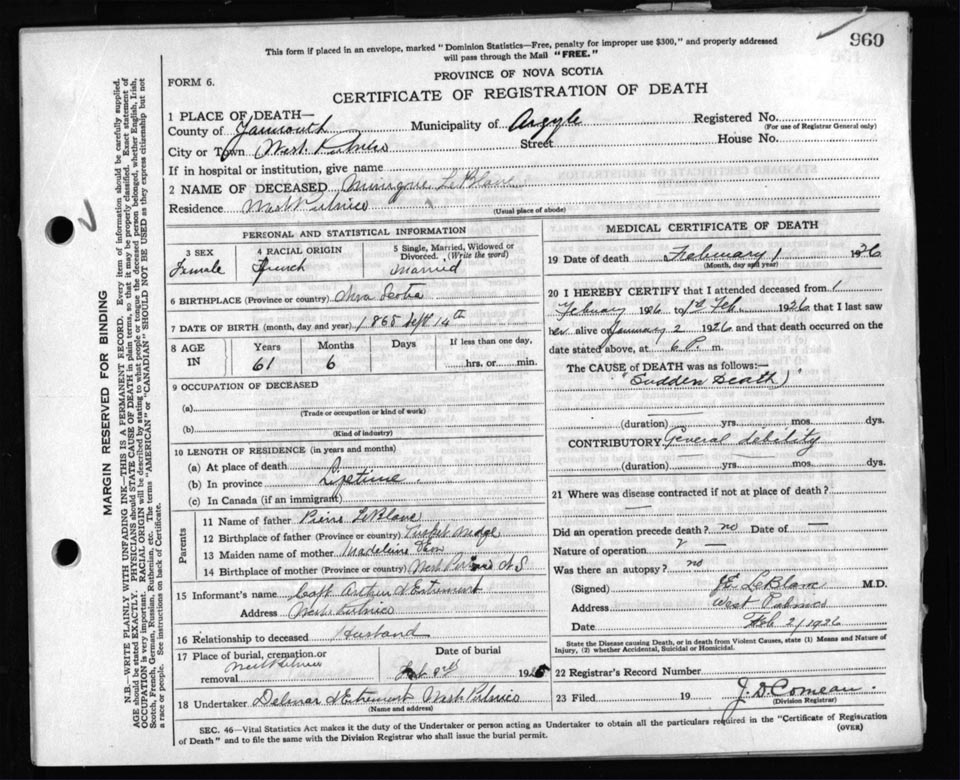 960
This form if placed in an envelope, marked "Dominion Statistics—Free, penalty for improper use $300," and properly addressed
will pass through the Mail "FREE."
PROVINCE OF NOVA SCOTIA
FORM 6.
CERTIFICATE OF REGISTRATION OF DEATH
1 PLACE OF DEATH—
County of Yarmouth Municipality of Argyle Registered No.
(For use of Registrar General only)
City or Town West Pubnico Street House No.
If in hospital or institution, give name
2 NAME OF DECEASED LeBlanc
Residence West Pubnico
(Usual place of abode)
PERSONAL AND STATISTICAL INFORMATION
3 SEX 4 RACIAL ORIGIN 5 Single, Married, Widowed or Divorced. (Write the word)
Female French Married
6 BIRTHPLACE (Province or country) Nova Scotia
7 DATE OF BIRTH (month, day and year) 1865 Sept 14th
8 AGE IN Years Months Days If less than one day,
61 6 hrs. or min.
9 OCCUPATION OF DECEASED
(a)
(Trade or occupation or kind of work)
(b)
(Kind of industry)
10 LENGTH OF RESIDENCE (in years and months)
(a) At place of death
(b) In province Lifetime
(c) In Canada (if an immigrant)
Parents
11 Name of father Pierre LeBlanc
12 Birthplace of father (Province or country) Tusket Wedge
13 Maiden name of mother Madeleine
14 Birthplace of mother (Province or country) West Pubnico N S
15 Informant's name Capt Arthur d'Entremont
Address West Pubnico
16 Relationship to deceased Husband
17 Place of burial, cremation or removal Date of burial
West Pubnico Feb. 3rd 1926
18 Undertaker Delmar d'Entremont West Pubnico
(Name and address)
MEDICAL CERTIFICATE OF DEATH
19 Date of death February 1 1926
(Month, day and year)
20 I HEREBY CERTIFY that I attended deceased from 1
February 1926 to 1st Feb. 1926 that I last saw
her alive on January 2 1926 and that death occurred on the
date stated above, at 6 P. m.
The CAUSE of DEATH was as follows:—
"Sudden Death)
(duration) yrs. mos. dys.
CONTRIBUTORY General debility
(duration) yrs. mos. dys.
21 Where was disease contracted if not at place of death?
Did an operation precede death? no Date of
Nature of operation
Was there an autopsy? no
(Signed) J E LeBlanc M.D.
Address West Pubnico
Date Feb 2/1926
State the Disease causing Death, or in death from Violent Causes, state (1) Means and Nature of
Injury, (2) whether Accidental, Suicidal or Homicidal.
22 Registrar's Record Number
23 Filed 19 J. D. Comeau.
(Division Registrar)
SEC. 46—Vital Statistics Act makes it the duty of the Undertaker or person acting as Undertaker to obtain all the particulars required in the "Certificate of Registration
of Death" and to file the same with the Division Registrar who shall issue the burial permit. (OVER)
MARGIN RESERVED FOR BINDING
N.B.—WRITE PLAINLY WITH UNFADING INK—THIS IS A PERMANENT RECORD. Every item of information should be carefully supplied.
AGE should be stated EXACTLY. PHYSICIANS should STATE CAUSE OF DEATH in plain terms, so that it may be properly classified. Exact statement of
OCCUPATION is very important. RACIAL ORIGIN will be described by stating to what people or tongue the deceased person belonged, whether English, Irish,
Scotch, French, German, Russian, Ruthenian, etc. The terms "AMERICAN" or "CANADIAN" SHOULD NOT BE USED as they express citizenship but not
a race or people. See instructions on back of Certificate.